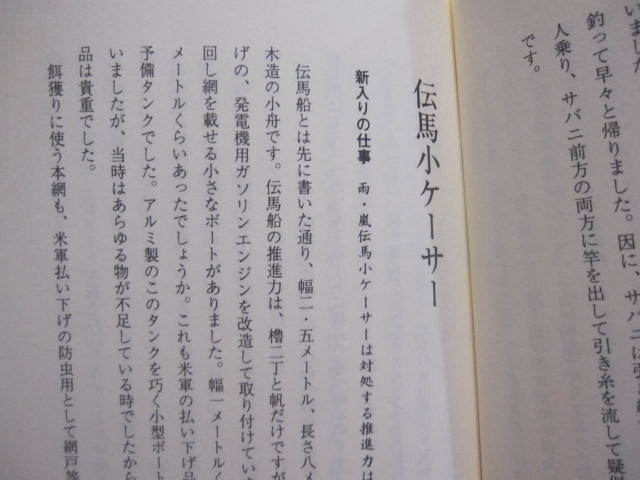 いました
釣って早々と帰りました。因に、サバニは引き
人乗り、サバニ前方の両方に竿を出して引き糸を流して疑似
です。
伝馬小ケーサー
新入りの仕事　雨・嵐伝馬小ケーサーは対処する推進力は
伝馬船とは先に書いた通り、幅二・五メートル、長さ八メ
木造の小舟です。伝馬船の推進力は、櫓二丁と帆だけですが
げの、発電機用ガソリンエンジンを改造して取り付けていま
回し網を載せる小さなボートがありました。幅一メートルく
メートルくらいあったでしょうか。これも米軍の払い下げ品
予備タンクでした。アルミ製のこのタンクを巧く小型ボート
いましたが、当時はあらゆる物が不足している時でしたから
品は貴重でした。
餌獲りに使う本網も、米軍払い下げの防虫用として網戸等